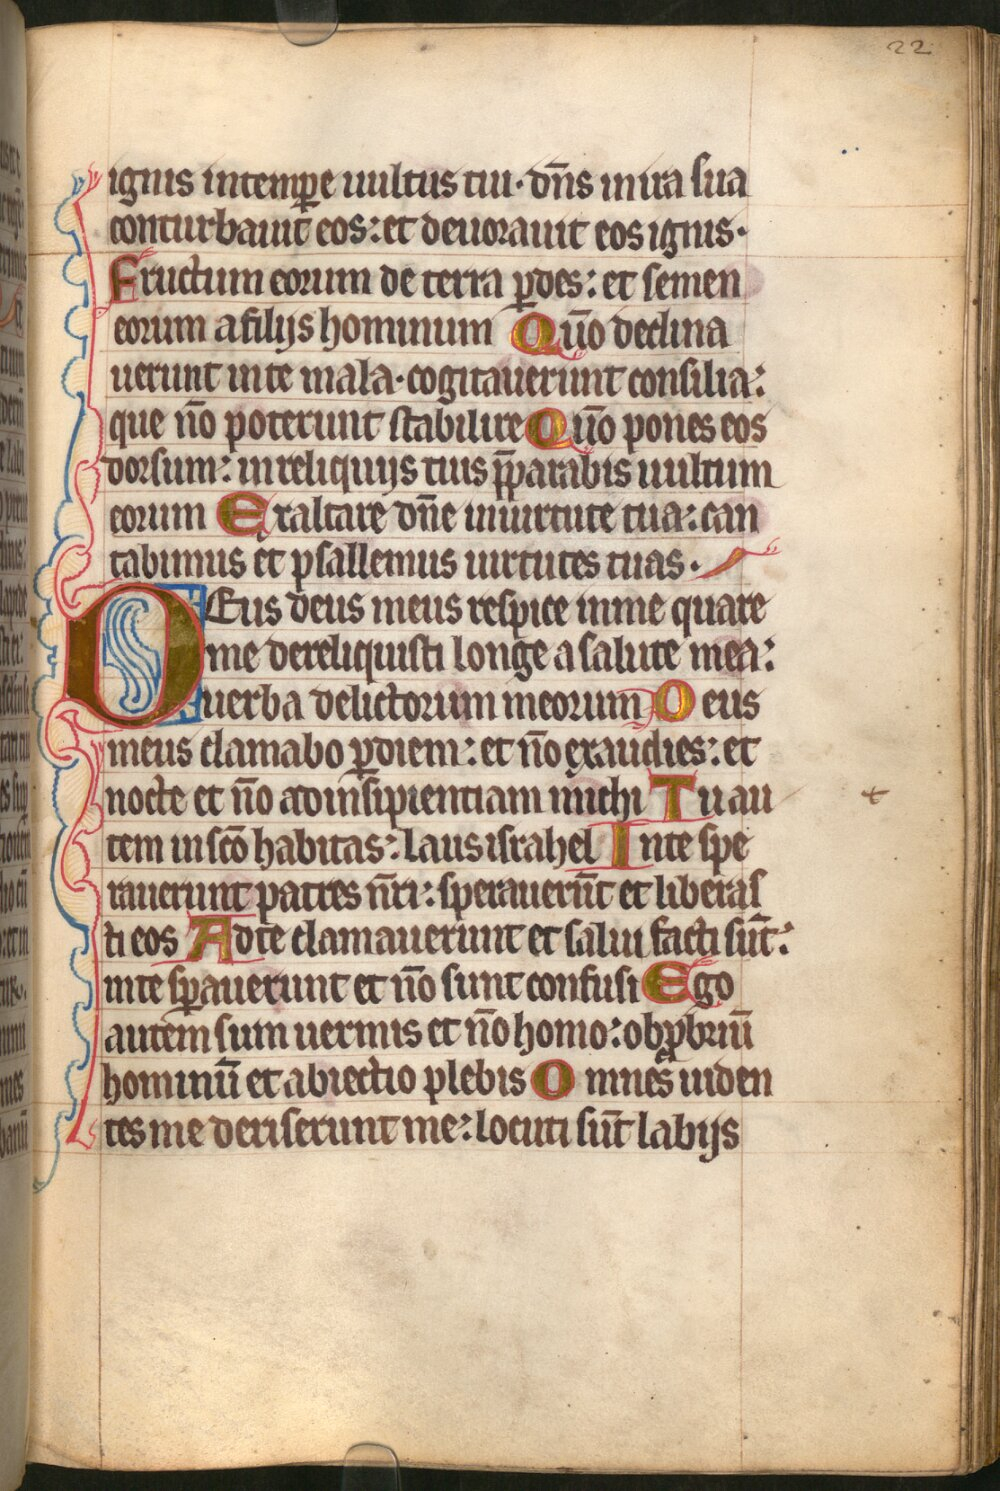 22
ignis intemp̲e uultus tui· dn̄s in ira sua
conturbauit eos: et deuorauit eos ignis·
Fructum eorum de terra ꝑdes: et semen
eorum a filijs hominum Qūo declina
uerunt in te mala· cogitauerunt consilia:
que no̅ poterunt stabilire Qūo pones eos
dorsum: in reliquijs tuis p̅ꝑarabis uultum
eorum Exaltare dn̄e in uirtute tua: can
tabimus et psallemus uirtutes tuas·
DEus deus meus respice in me quare
me dereliquisti longe a salute mea:
uerba delictorum meorum Deus
meus clamabo ꝑ diem: et no̅ exaudies: et
nocte et no̅ ad insipientiam michi Tu au
tem in sc̄o habitas: laus israhel In te spe
rauerunt patres nr̄i: sperauerūt et liberas
ti eos Ad te clamauerunt et salui facti sūt:
in te sꝑauerunt et no̅ sunt confusi Ego
autem sum uermis et no̅ homo: obp̱briū
hominū et abiectio plebis Omnes uiden
tes me deriserunt me: locuti sūt labijs